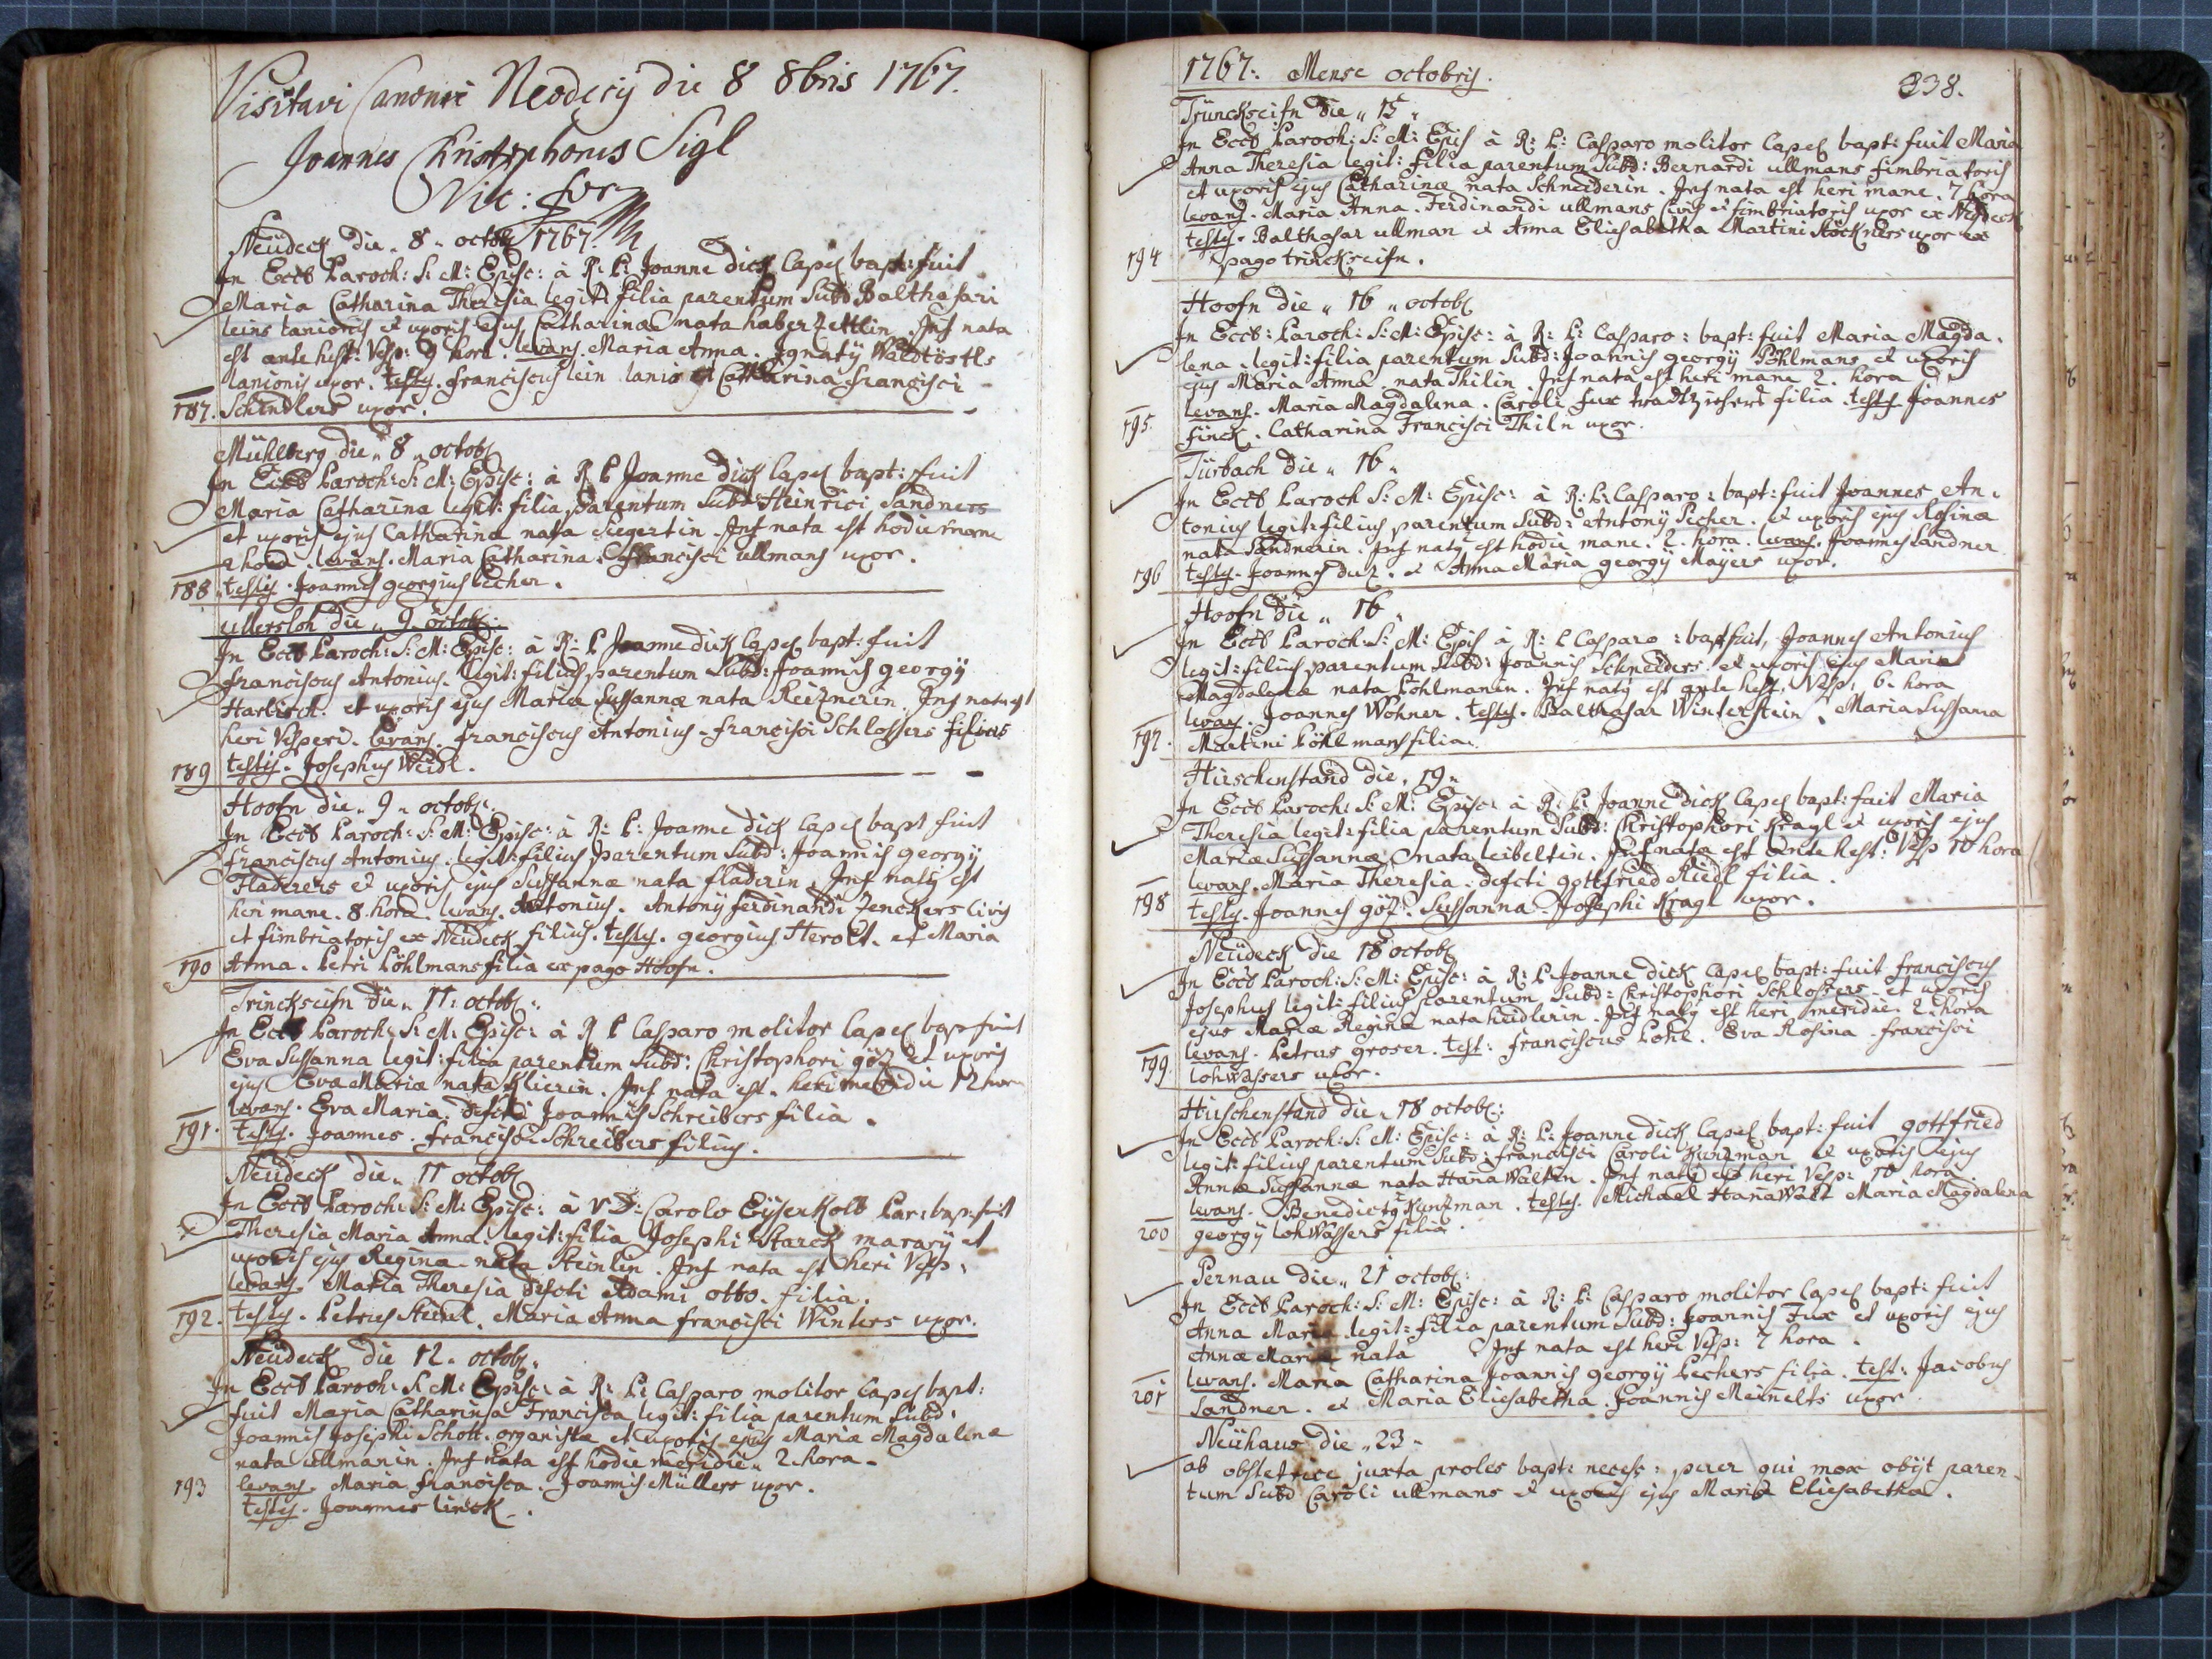 Visitavi Canonicè Neodecij die 8 8bris 1767.
Joannes Christophorus Sigl
Vic: for:
Neüdeck die „ 8 „ octob: 1767.
In Eccl: Paroch: S: M: Episc: à R: P: Joanne dick Capel: bapt: fuit
Maria Catharina Theresia legit: filia parentum Subd: Balthasari
leins lanionis et uxoris ejus Catharinæ nata haberzettlin. Inf nata
est ante hest: Vesp: 9 hora. levans. Maria Anna. Ignatÿ
lanionis uxor. testes. franciscus lein lanio et Catharina francisci
187. Schindlers uxor.
Mühlberg die „ 8 „ octob:
In Eccl: Paroch: S: M: Episc: à R P Joanne dick Capel: bapt: fuit
Maria Catharina legit: filia parentum Subd: Heinrici Sandners
et uxoris ejus Catharinæ nata Siegertin. Inf nata est hodie mane
2 hora. levans. Maria Catharina. francisci ullmans uxor.
188 testes. Joannes georgius Pecher.
ullersloh die „ 9 „ octob:
In Eccl: Paroch: S: M: Episc: à R: P Joanne dick Capel: bapt: fuit
franciscus Antonius. legit: filius parentum Subd: Joannis georgÿ
et uxoris ejus Mariæ Sussannæ nata Reiznerin. Inf natus est
heri Vesperi. levans. franciscus Antonius francisci Schlossers filius
189 testes. Josephus Weidl.
Hoofn die „ 9 „ octob:
In Eccl: Paroch: S: M: Episc: à R: P: Joanne dick Capel: bapt fuit
franciscus Antonius. legit: filius parentum Subd: Joannis georgÿ
Fladerers et uxoris ejus Sussannæ nata fladerin. Inf natus est
heri mane. 8 hora. levans. Antonius. Antonÿ ferdinandi Zenckers civis
et fimbriatoris ex Neüdeck filius. testes. georgius Herolt. et Maria
190 Anna. Petri Pöhlmans filia ex pago Hoofn.
Trinckseifn die „ 11: octob:
In Eccl: Paroch: S: M: Episc: à R P Casparo molitor Capel: bapt fuit
Eva Susanna legit: filia parentum Subd: Christophori göz et uxoris
ejus Eva Mariæ nata. Inf nata est. heri meridie 12 hora
levans. Eva Maria. defcti Joannis Schreibers filia.
191. testes. Joannes. francisci Schreibers filius.
Neüdeck die „ 11 octob:
In Eccl: Paroch: S: M: Episc: à Carolo Eysenkolb Par: bapt: fuit
Theresia Maria Anna. legit: filia Josephi Starck mararÿ et
uxoris ejus Regina nata Steinlin. Inf nata est heri Vesp:
levans. Maria Theresia defcti Adami otto. filia.
192. testes. Petrus. Maria Anna francisci Winters uxor.
Neüdeck die 12 „ octob:
In Eccl: Paroch: S: M: Episc: à R: P: Casparo molitor Capel: bapt:
fuit Maria Catharina Francisca legit: filia parentum Subd:
Joannis Josephi Schott. organistæ et uxoris ejus Mariæ Magdalenæ
nata ullmanin. Inf nata est hodie meridie „ 2 hora.
193 levans. Maria francisca. Joannis Müllers uxor.
testes. Joannes linck.
1767: Mense octobris.
338.
Trünckseifn die „ 15 „
In Eccl: Paroch: S: M: Epis à R: P: Casparo molitor Capel: bapt: fuit Maria
Anna Theresia legit: filia parentum Subd: Bernardi ullmans fimbriatoris
et uxoris ejus Catharinæ nata Schneiderin. Inf nata est heri mane. 7 hora
levans. Maria Anna. Ferdinandi ullmans civis et fimbriatoris uxor ex Neüdeck
testes. Balthasar ullman et Anna Eliesabetha Martini Stöckners uxor ex
194 pago trinckseifn.
Hoofn die „ 16 „ octob:
In Eccl: Paroch: S: M: Episc: à R: P: Casparo: bapt: fuit Maria Magda.
lena. legit: filia parentum Subd: Joannis georgÿ Pöhlmans et uxoris
ejus Maria Annæ nata Thilin. Inf nata est heri mane 2. hora
levans. Maria Magdalena. Caroli fux filia. testes Joannes
195. finck. Catharina Francisci Thiln uxor.
Türbach die „ 16 „
In Eccl: Paroch S: M: Episc: à R: P: Casparo: bapt: fuit Joannes An.
tonius legit: filius parentum Subd: Antonÿ Pecher. et uxoris ejus Rosinæ
nata Sandnerin. Inf natus est hodie mane. 2. hora. levans. Joannes Sandner
196 testes. Joannes. et Anna Maria georgÿ Mayers uxor.
Hoofn die „ 16 „
In Eccl: Paroch: S: M: Epis à R: P Casparo: bapt fuit, Joannes Antonius
legit: filius parentum Subd: Joannis Schneiders et uxoris ejus Mariæ
Magdalenæ nata Pöhlmanin. Inf natus est ante hest: Vesp: 6. hora
levans. Joannes Wohner. testes. Balthasar Winterstein. Maria Sussanna
197. Martini Pöhlmans filia.
Hirschenstand die „ 19 „
In Eccl: Paroch: S: M: Episc: à R: P: Joanne dick Capel: bapt: fuit Maria
Theresia legit: filia parentum Subd: Christophori Kragl et uxoris ejus
Mariæ Sussannæ nata leibeltin. Inf nata est ante hest: Vesp 10 hora
levans. Maria Theresia. defcti gottfried Riedl filia.
198 testes. Joannes göz. Sussanna Josephi Kragl uxor.
Neüdeck die 18 octob:
In Eccl: Paroch: S: M: Episc: à R: P Joanne dick Capel: bapt: fuit franciscus
Josephus legit: filius parentum Subd: Christophori Schlossers et uxoris
ejus Mariæ Reginæ nata heidlerin. Inf natus est heri meridie. 2. hora
levans. Petrus groser. test: franciscus Pohl. Eva Rosina francisci
199. lohwassers uxor.
Hirschenstand die „ 18 octob:
In Eccl: Paroch: S: M: Episc: à R: P: Joanne dick Capel: bapt: fuit gottfried
legit: filius parentum Subd: francisci Caroli Kunzman et uxoris ejus
Annæ Sussannæ nata Hanawaltin. Inf natus est heri Vesp: 10 hora
levans. Benedictus Kunzman. testes. Michael Hanawalt Maria Magdalena
200 georgÿ lohWassers filia.
Pernau die „ 21 octob:
In Eccl: Paroch: S: M: Episc: à R: P: Casparo molitor Capel: bapt: fuit
Anna Maria legit: filia parentum Subd: Joannis Fux et uxoris ejus
Annæ Mariæ nata Inf nata est heri Vesp: 7 hora.
levans. Maria Catharina Joannis georgÿ Pechers filia. test: Jacobus
201 Sandner. et Maria Eliesabetha. Joannis Meinelts uxor
Neühaus die „ 23 „
ab obstetrice juxta proles bapt: necess: puer qui mox obÿt paren.
tum Subd Caroli ullmans et uxoris ejus Mariæ Eliesabetha.